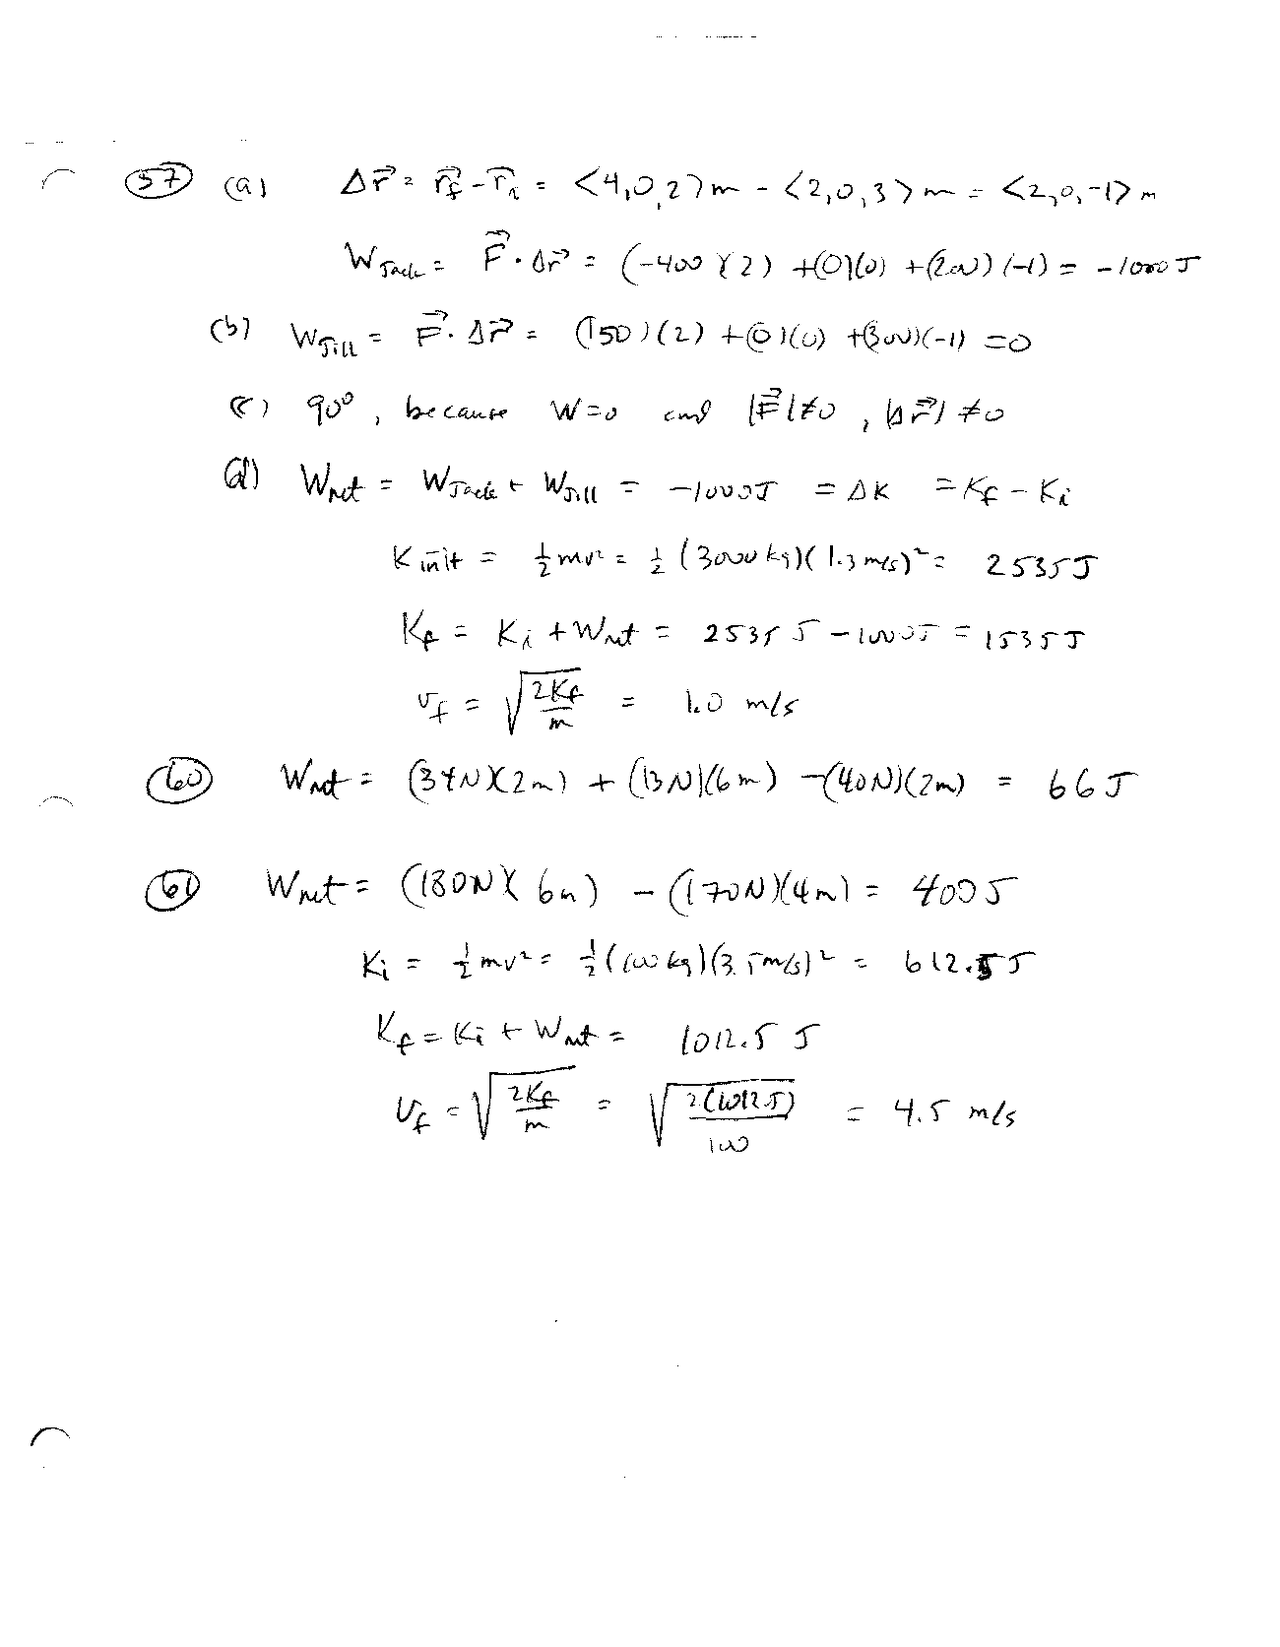 57 (a) Δr⃗ = r⃗f - r⃗i = <4,0,2>m - <2,0,3>m = <2,0,-1>m
WJack = F⃗ · Δr⃗ = (-400)(2) + (0)(0) + (200)(-1) = -1000J
(b) WJill = F⃗ · Δr⃗ = (150)(2) + (0)(0) + (300)(-1) = 0
(c) 90°, because W=0 and |F⃗|≠0, |Δr⃗|≠0
(d) Wnet = WJack + WJill = -1000J = ΔK = Kf - Ki
Kinit = ½mv² = ½(3000kg)(1.3m/s)² = 2535J
Kf = Ki + Wnet = 2535J - 1000J = 1535J
vf = √(2Kf/m) = 1.0 m/s
60 Wnet = (34N)(2m) + (13N)(6m) - (40N)(2m) = 66J
61 Wnet = (180N)(6m) - (170N)(4m) = 400J
Ki = ½mv² = ½(100kg)(3.5m/s)² = 612.5J
Kf = Ki + Wnet = 1012.5 J
vf = √(2Kf/m) = √(2(1012.5)/100) = 4.5 m/s